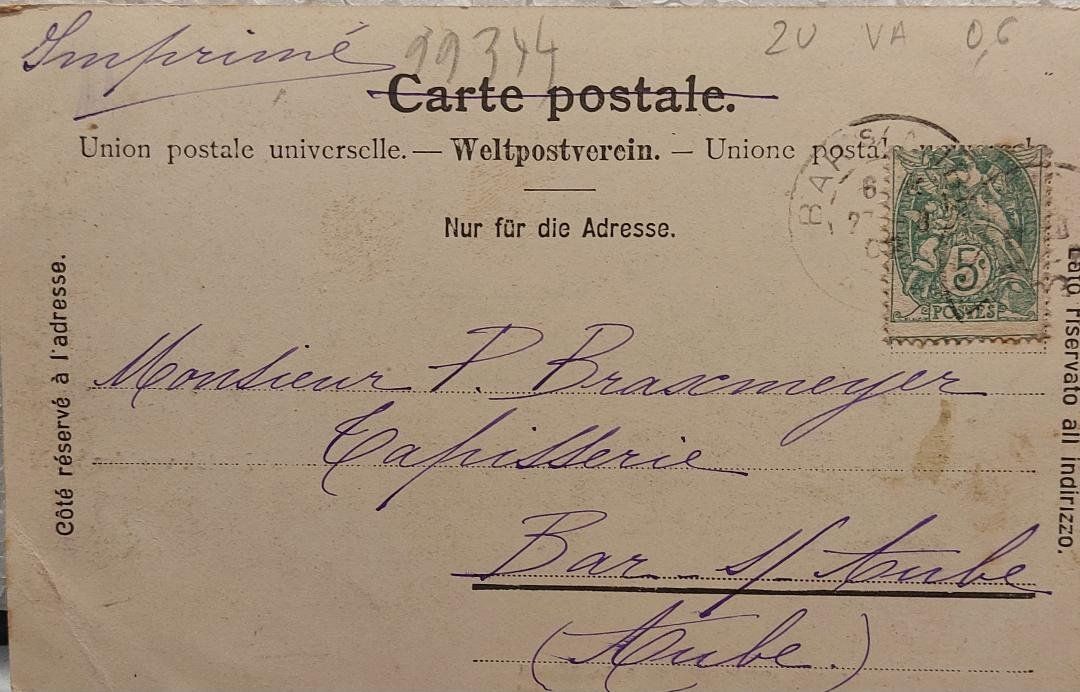 Imprimé
99344
2U VA 0,6
Carte postale.
Union postale universelle. — Weltpostverein. — Unione postale
Nur für die Adresse.
BAR-S
5c
POSTES
Côté réservé à l'adresse.
Lato riservato all indirizzo.
Monsieur P. Braxmeyer
Tapisserie
Bar s/ Aube
(Aube.)